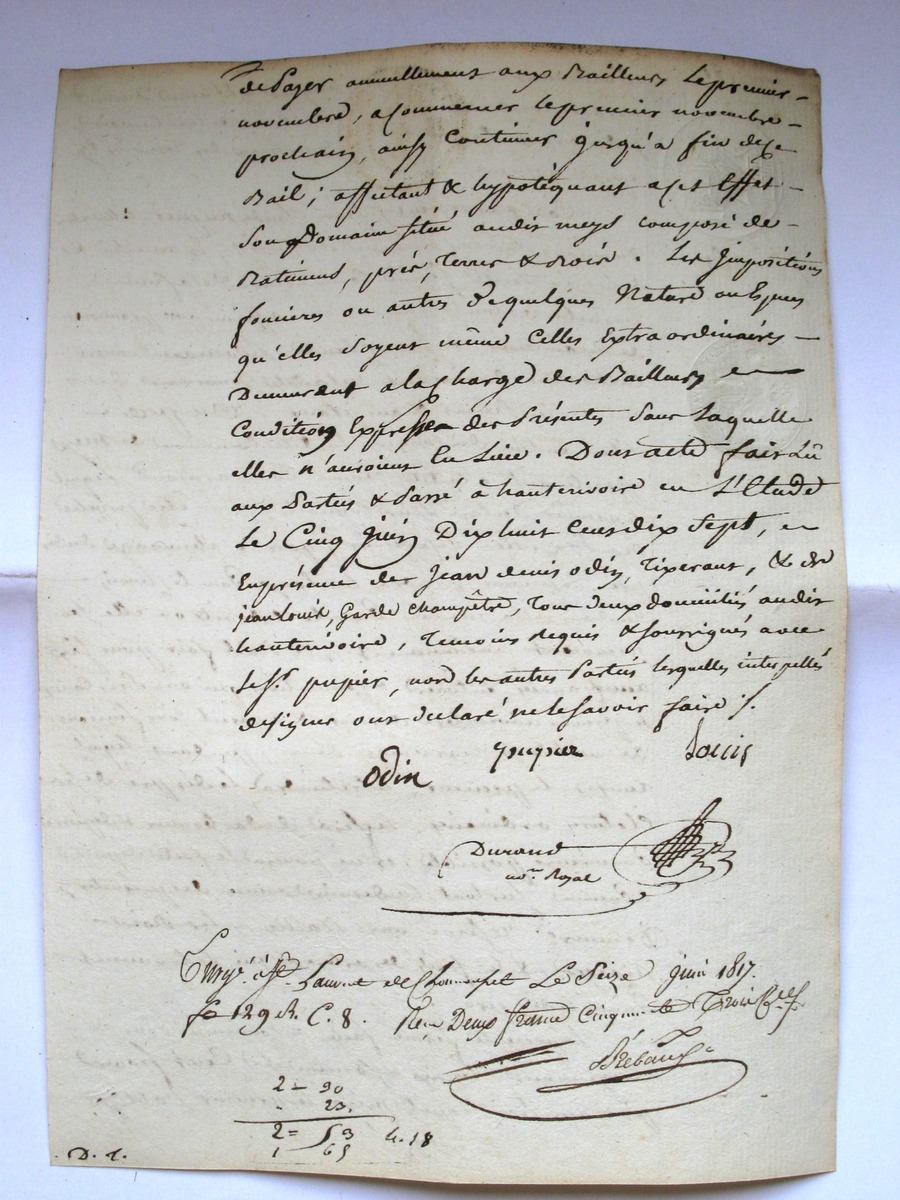 de payer annuellement aux Bailleurs le premier
novembre, a commencer le premier novembre
prochain, ainsy continuer jusqu'a fin de ce
Bail; affectant & hypotéquant a cet Effet
son Domaine situé audit meys composé de
Batiments, prés, Terres & Bois. Les Jmpositions
foncières ou autres de quelques Nature ou Espèces
qu'elles soyent même celles Extraordinaires
Demeurent a la Charge des Bailleurs
Condition Expresse des Présentes sans Laquelle
elles n'auroient Eu Lieu. Dont acte fait Lû
aux Parties & Passé à hauterivoire en L'Etude
Le Cinq Juin Dix huit Cent dix Sept, en
En présence de Jean denis odin, Tixerant, & de
jean Louis, Garde Champêtre, Tous deux domiciliés audit
hauterivoire, Temoins Requis & soussignés avec
le Sr. pupier, non les autres Parties lesquelles interpellés
de signer ont declaré ne le savoir faire /.
odin pupier Louis
Durand
nore. Royal
Enrgé. à St. Laurent de Chamousset Le Seize juin 1817.
fo 129 R. C. 8. Reçu Deux francs Cinquante Trois
2 = 90
23.
2 = 53 4.18
1 65
D. T.